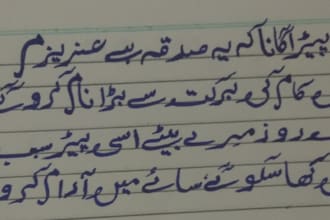 پیڑ لگانا کہ یہ صدقہ ہے عزیزم
کام کی برکت سے بڑا نام کرو گے
دو میرے بیٹے اسی پیڑ سے
کھا سکو گے سائے میں آرام کرو